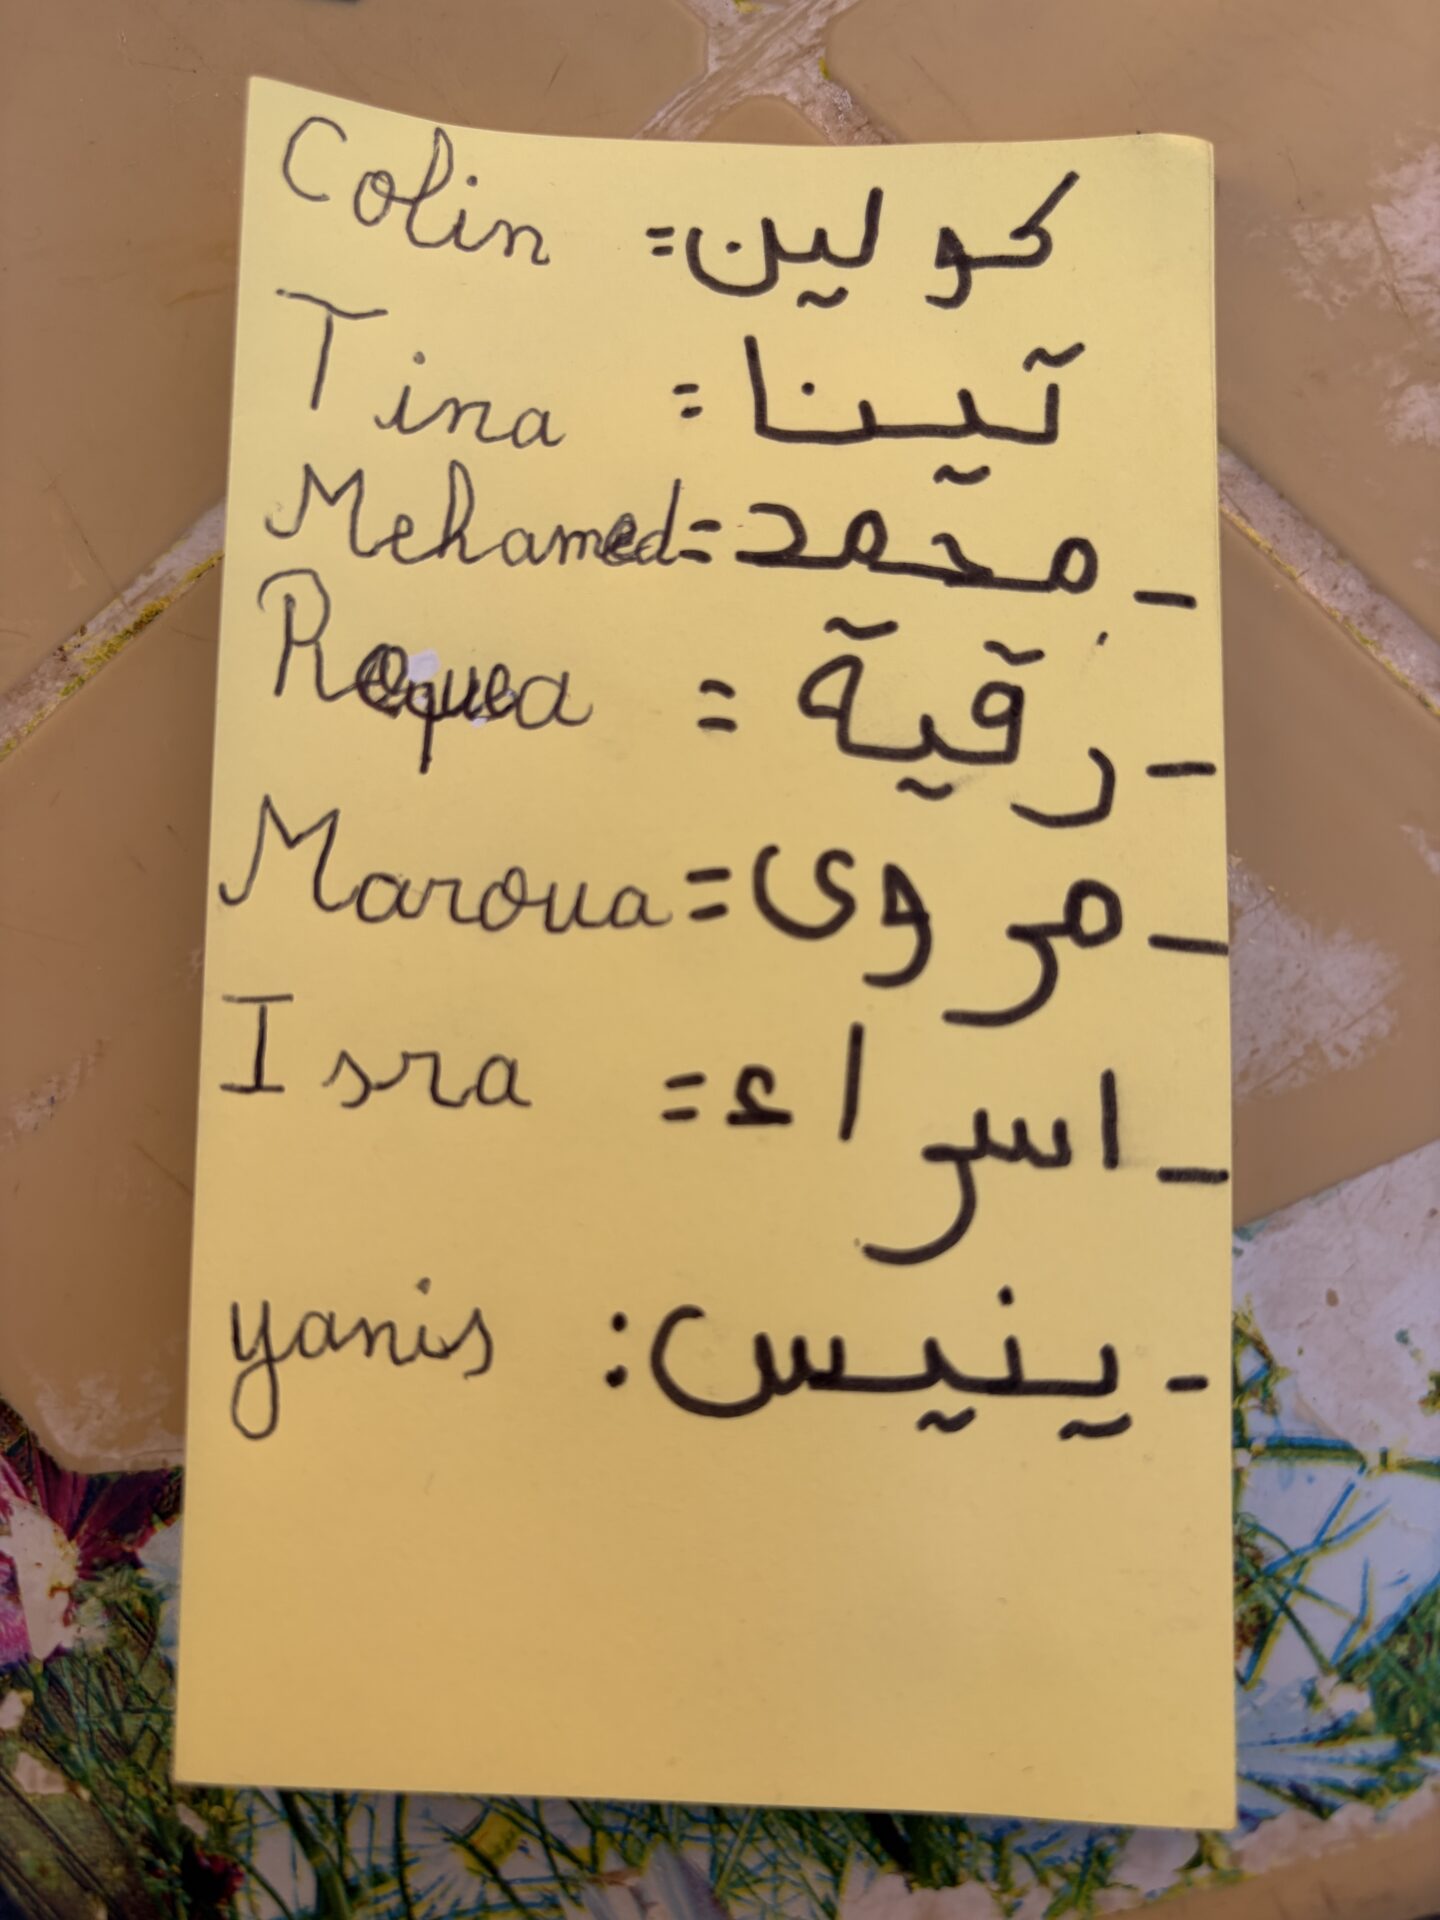 Colin =كولين
Tina = تينا
Mehamed =محمد -
Roquea = رقية -
Maroua =مروى -
Isra =اسراء -
yanis :ينيس -